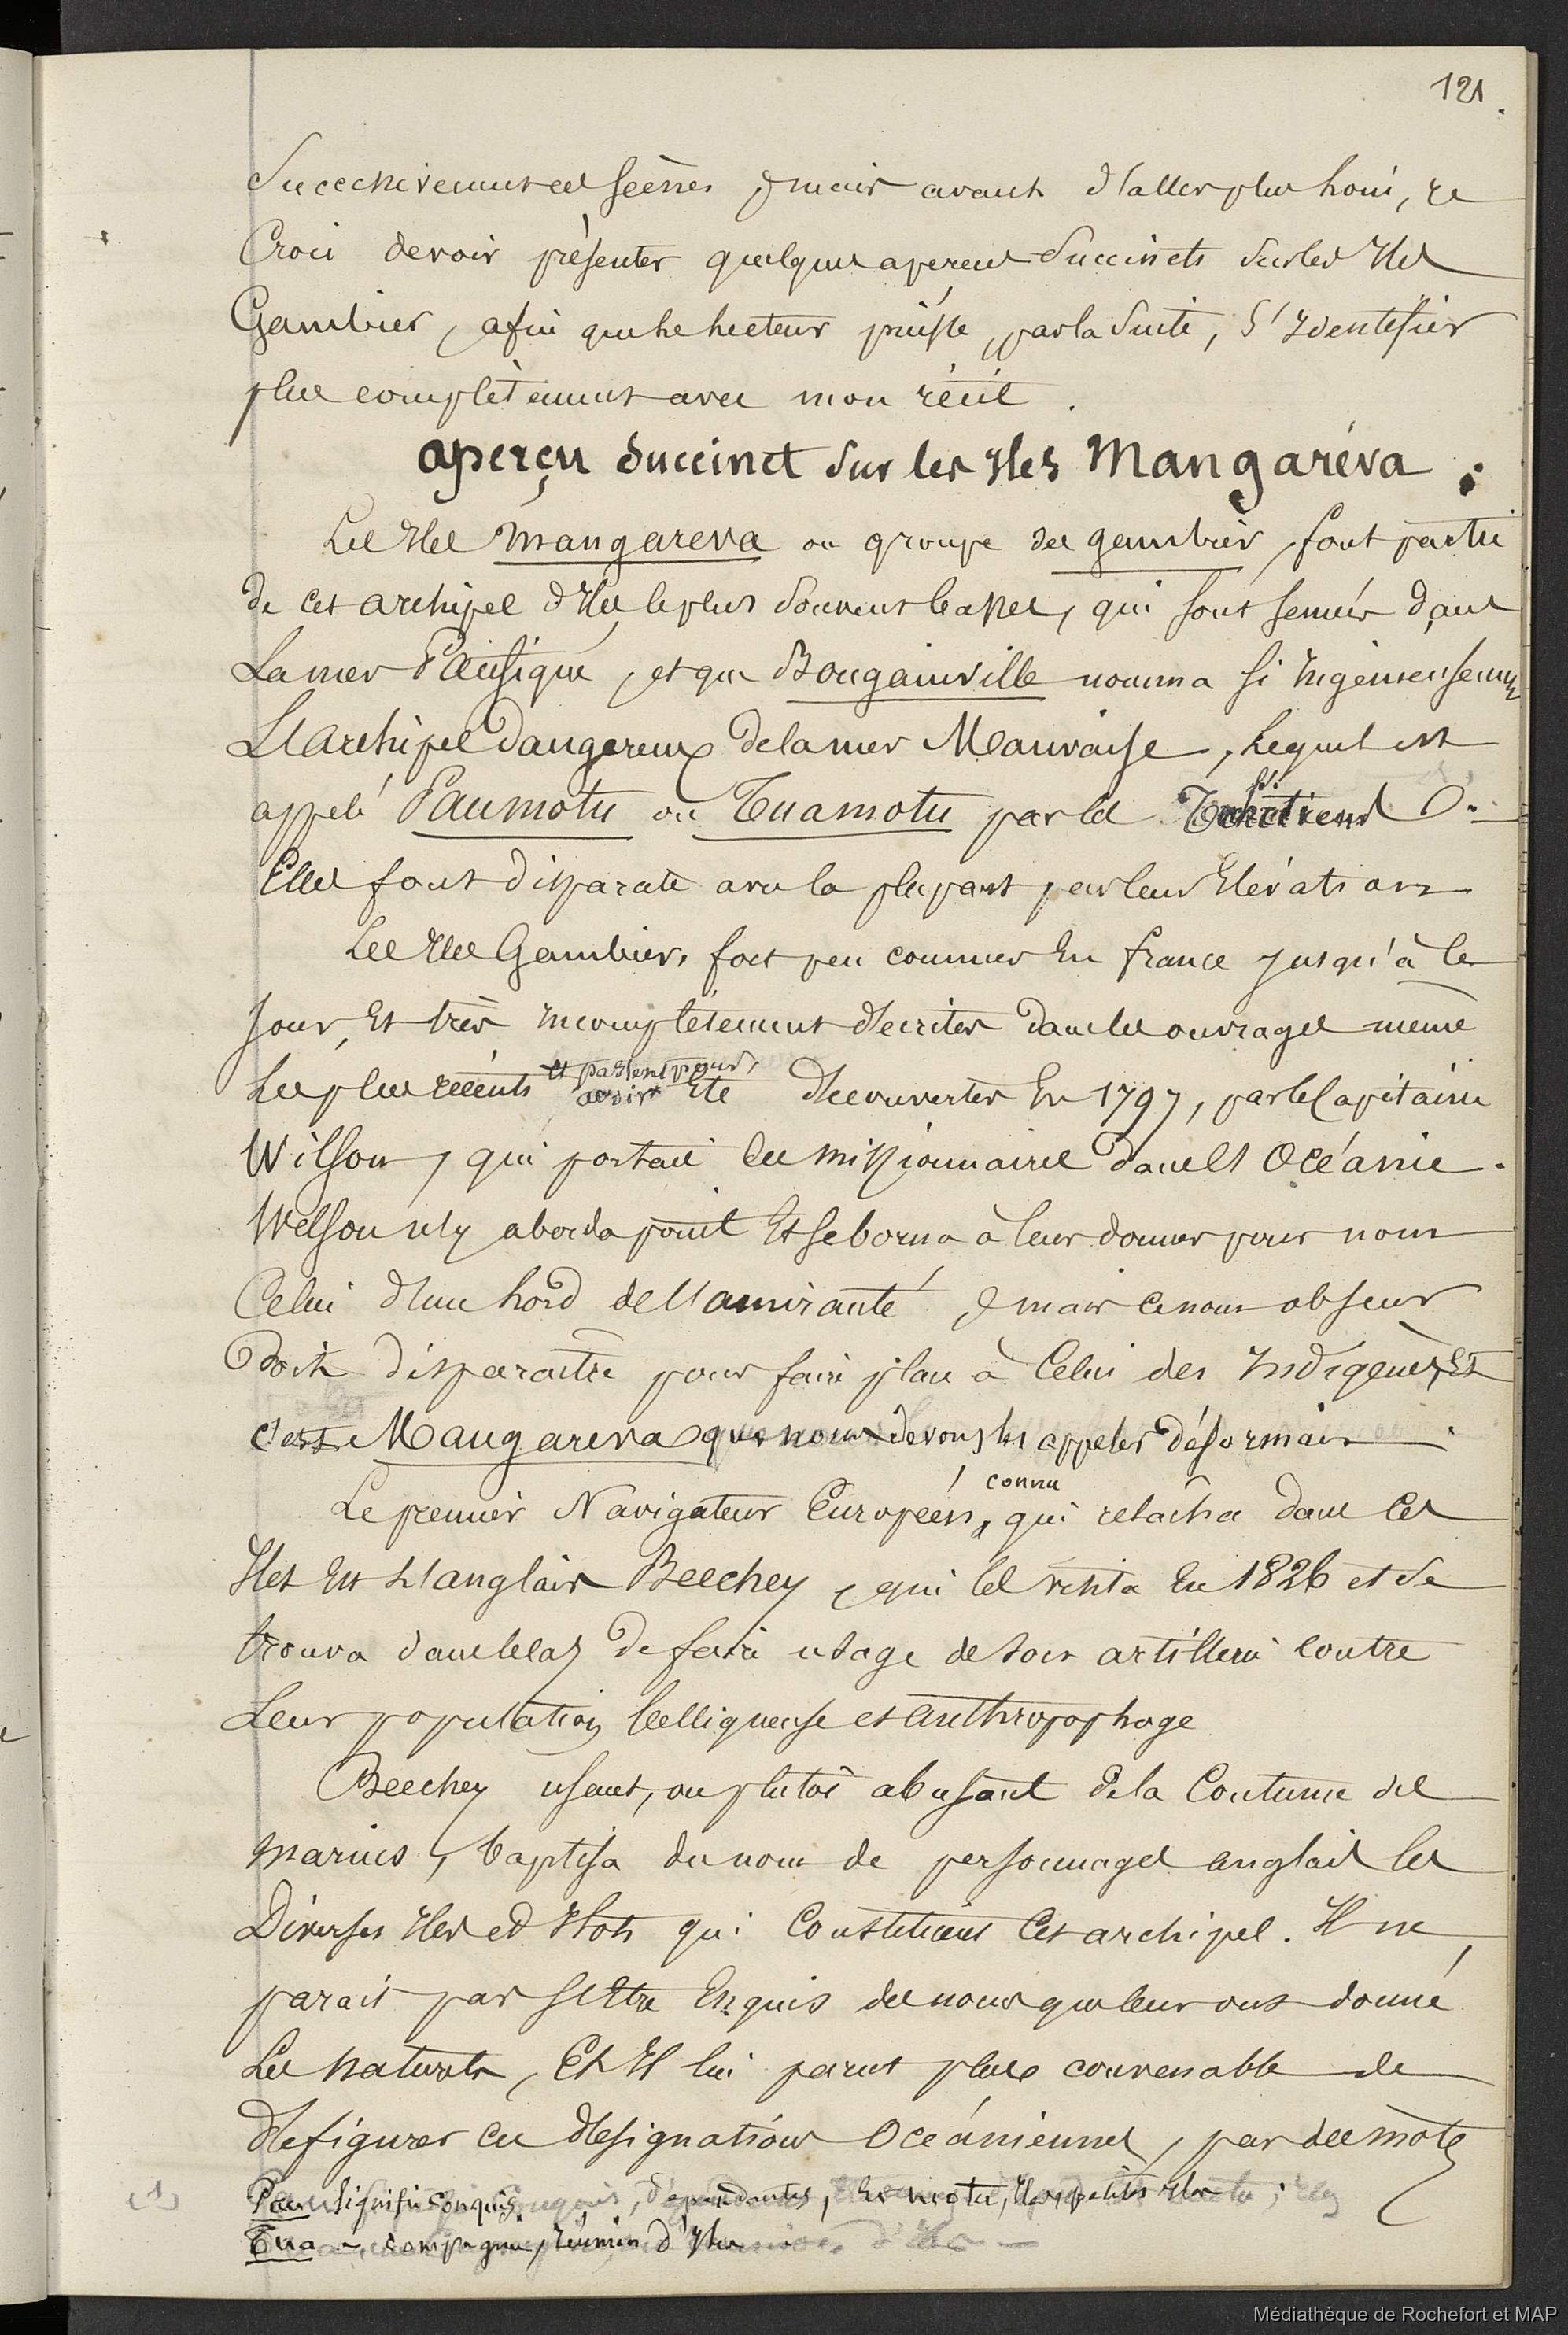 121.
Successivement ces scènes, mais avant d'aller plus loin, je
Crois devoir présenter quelques apercus Succincts sur les Iles
Gambier, afin que le lecteur puisse, par la suite, s'Identifier
plus complètement avec mon récit.
aperçu Succinct sur les Iles Mangaréva.
Les Iles Mangareva ou groupe des gambier, font partie
de cet archipel d'Iles, le plus Souvent basses, qui sont semées dans
La mer Pacifique, et que Bougainville nomma si Ingénieusement
L'Archipel Dangereux de la mer Mauvaise, lequel est
appelé Paumotu ou Tuamotu par les
Elles font disparate avec la plupart par leur Elévation
Les Iles Gambier, fort peu connues En france jusqu'à ce
Jour, Et très Incomplètement décrites dans les ouvrages même
Les plus récents et passent pour
avoir Eté découvertes En 1797, par le Capitaine
Wilson, qui portait des missionnaires dans l'Océanie.
Wilson n'y aborda point Et se borna à leur donner pour nom
Celui d'un lord de l'amirauté, mais ce nom obscur
Doit disparaitre pour faire place à Celui des Indigènes, Et
c'est Mangareva que nous devons les appeler Désormais.
Le premier Navigateur Européen, connu
qui relâcha dans Ces
Iles Est L'anglais Beechey, qui les visita En 1826 et se
trouva dans le cas de faire usage de son artillerie contre
Leur population belliqueuse et anthropophage
Beechey usant, ou plutôt abusant de la Coutume des
marins, baptisa du nom de personnages anglais les
Diverses Iles et Ilots qui Constituent Cet archipel. Il ne
parait pas s'Etre Enquis des noms que leur ont donné
Les naturels, Et Il lui parut plus convenable de
défigurer ces désignations Océaniennes, par des mots
(1) Pau signifie conquis, dépendantes, Iles, petites Iles
Tua - compagnie, réunion d'Iles
Médiathèque de Rochefort et MAP